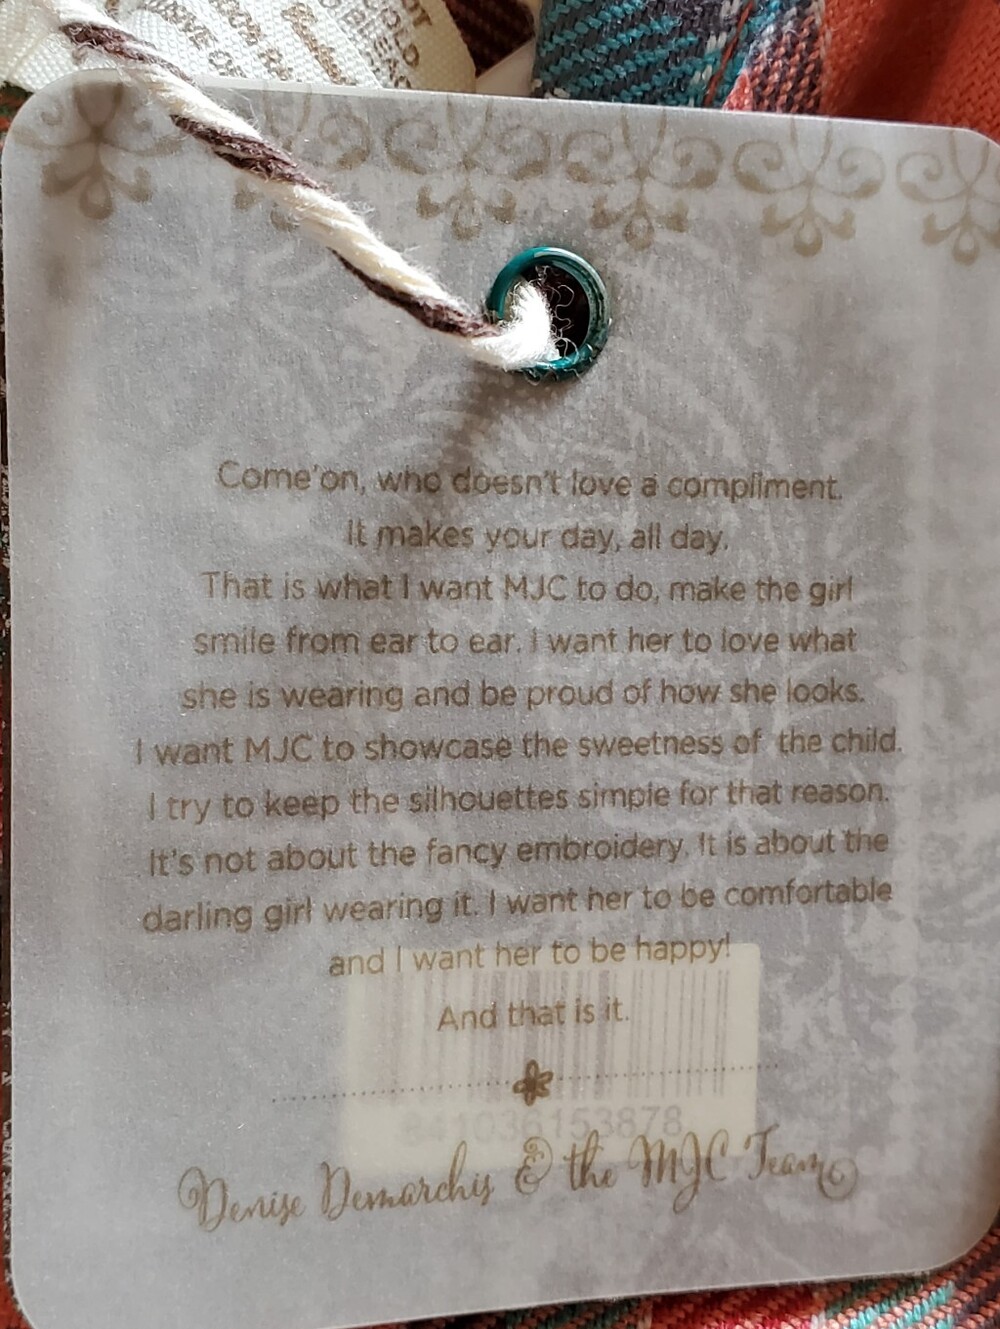 OLD
Come'on, who doesn't love a compliment.
It makes your day, all day.
That is what I want MJC to do, make the girl
smile from ear to ear. I want her to love what
she is wearing and be proud of how she looks.
I want MJC to showcase the sweetness of the child.
I try to keep the silhouettes simple for that reason.
It's not about the fancy embroidery. It is about the
darling girl wearing it. I want her to be comfortable
and I want her to be happy!
And that is it.
841036153878
Denise Demarchis & the MJC Team